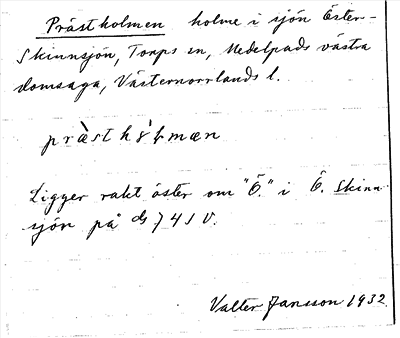 Prästholmen holme i sjön Öster-
Skinnsjön, Torps sn, Medelpads västra
domsaga, Västernorrlands l.
Ligger rakt öster om "Ö." i Ö. Skinn-
sjön på 741 V.
Valter Jansson 1932